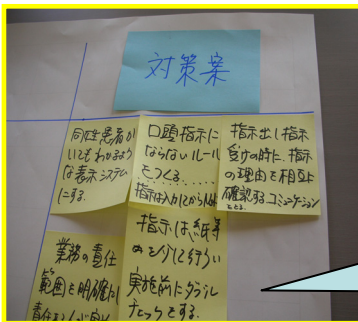 対策案
同姓患者が
いてもわかるよう
な表示システム
にする.
口頭指示に
ならないルール
をつくる......
指示は入力してから
指示出し指示
受けの時に、指示
の理由を相互
確認するコミュニケーション
をとる.
業務の責任
範囲を明確にし
指示は紙等
めを介して行い
実施前にダブル
チェックをする.